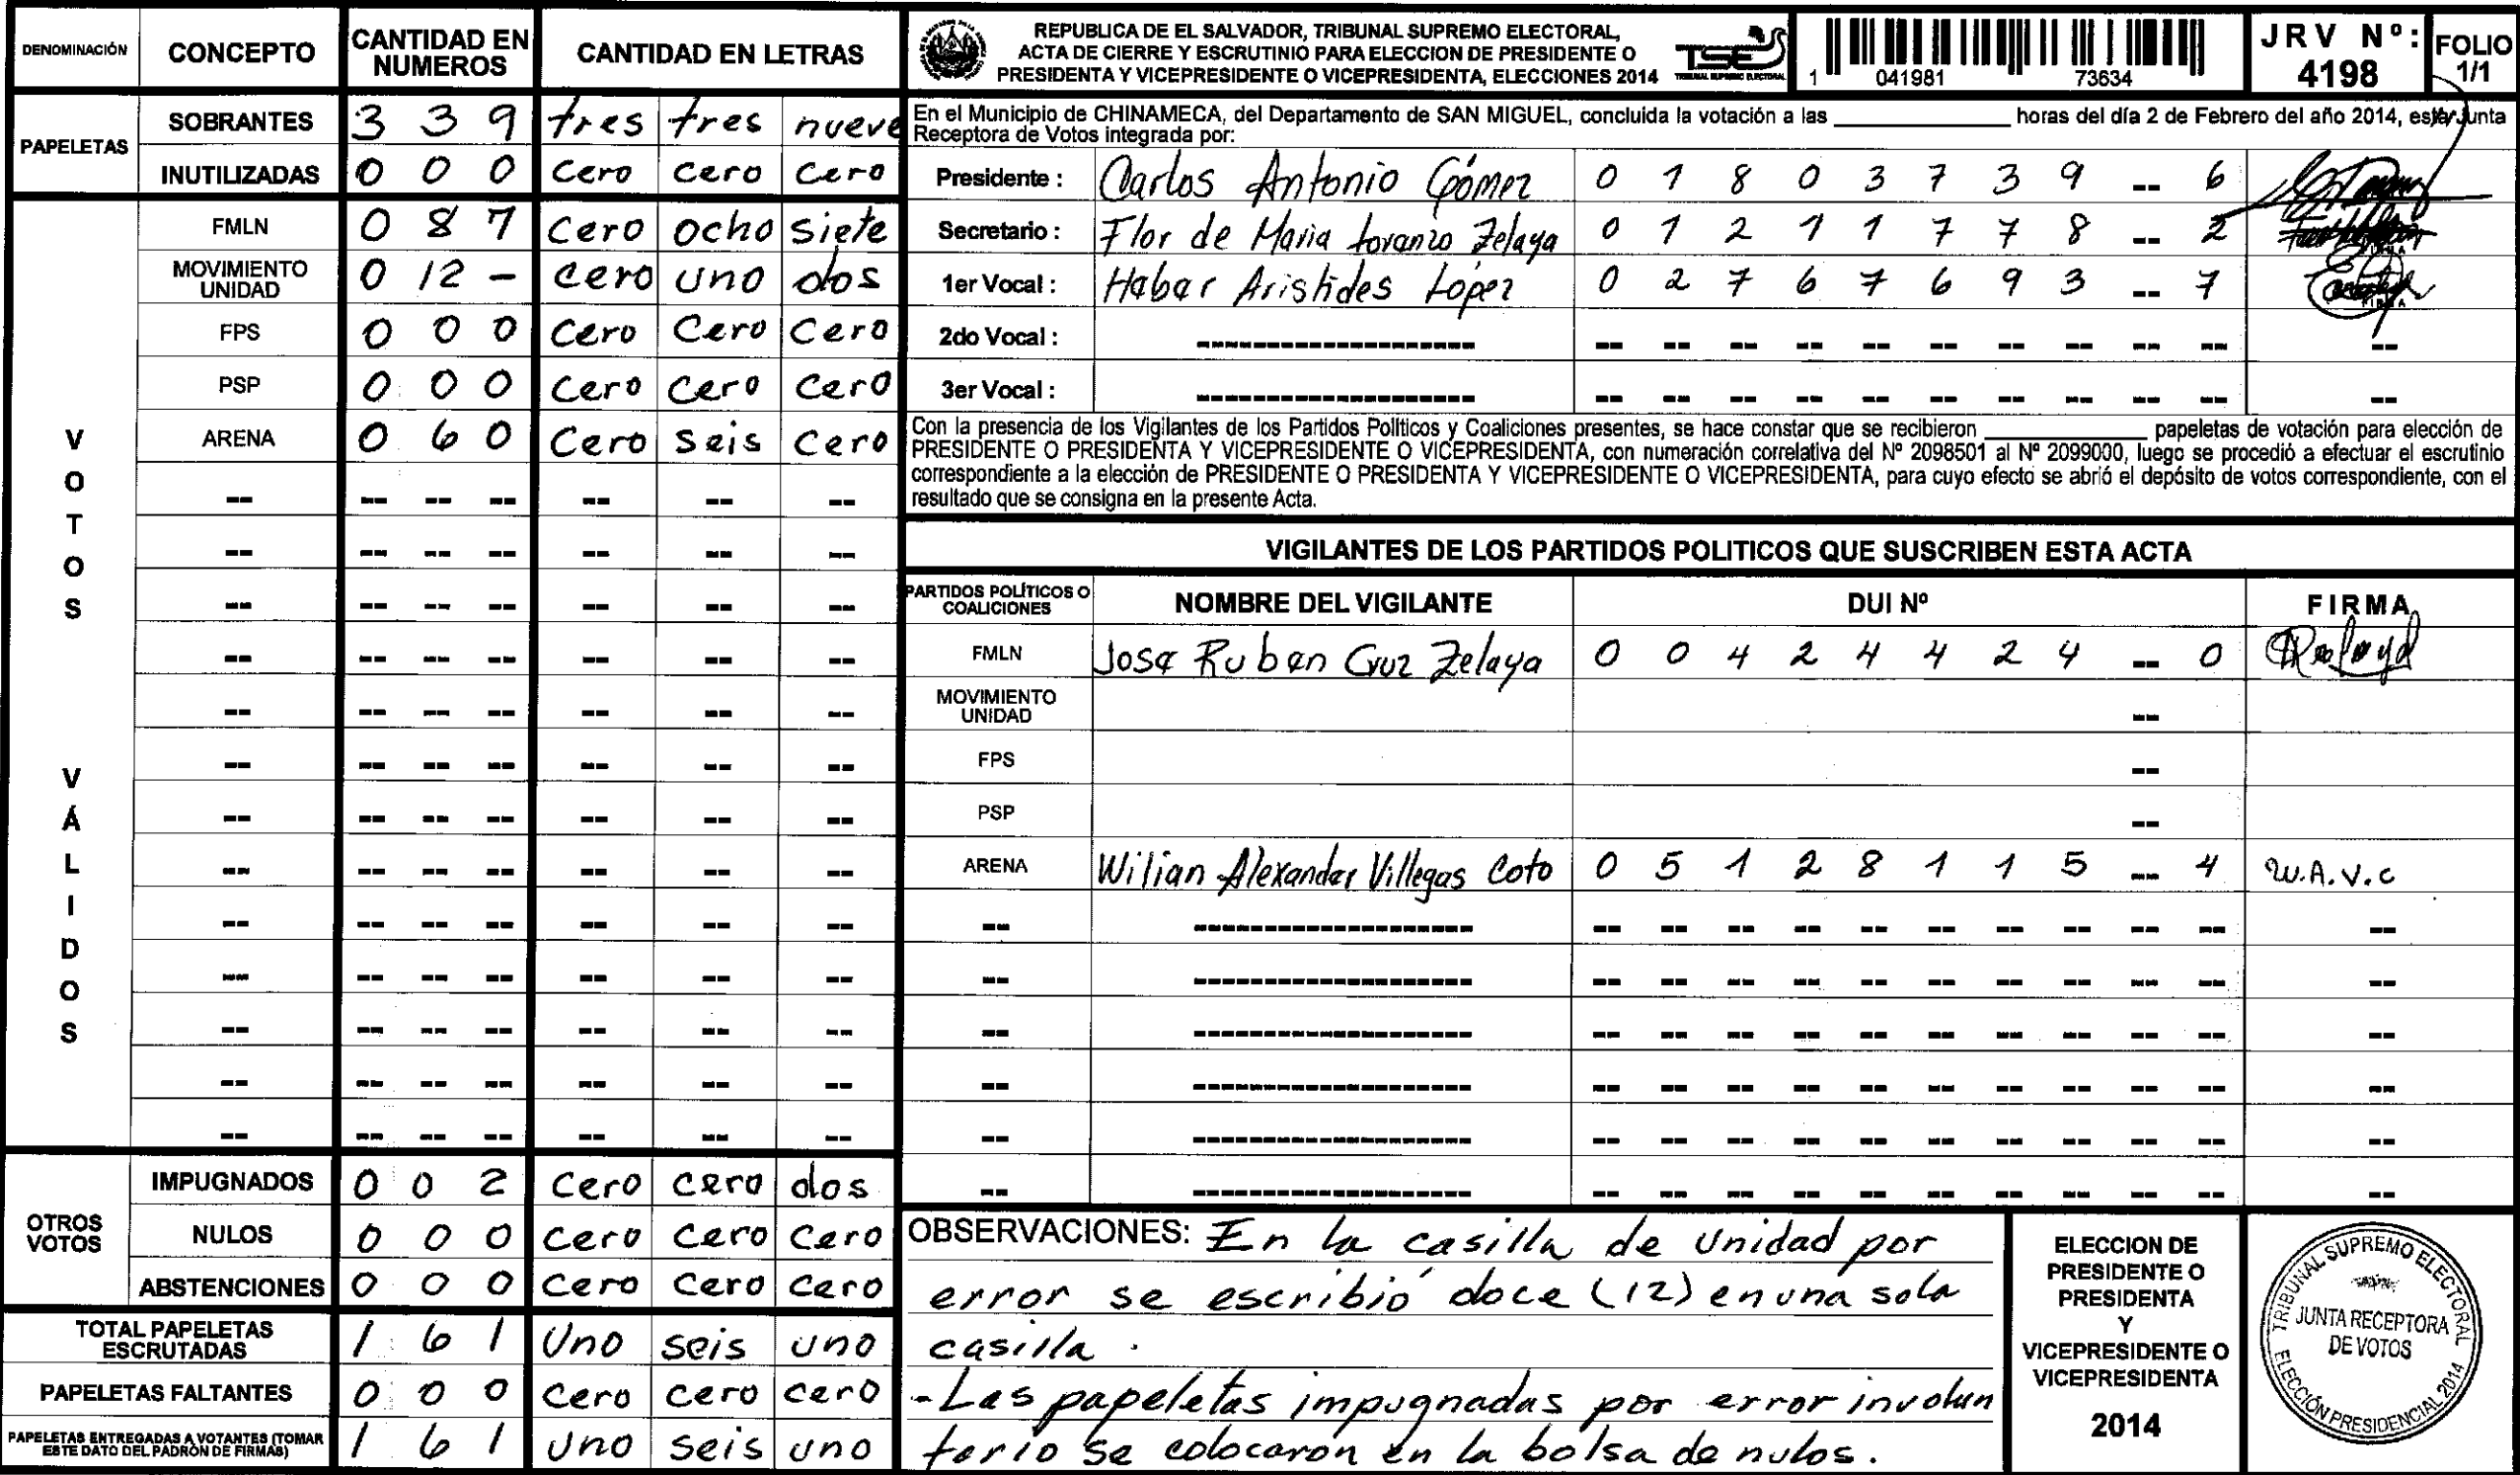 DENOMINACIÓN CONCEPTO CANTIDAD EN NUMEROS CANTIDAD EN LETRAS
PAPELETAS
SOBRANTES 3 3 9 tres tres nueve
INUTILIZADAS 0 0 0 cero cero cero
VOTOS VÁLIDOS
FMLN 0 8 7 cero ocho siete
MOVIMIENTO UNIDAD 0 12 - cero uno dos
FPS 0 0 0 cero cero cero
PSP 0 0 0 cero cero cero
ARENA 0 6 0 cero seis cero
OTROS VOTOS
IMPUGNADOS 0 0 2 cero cero dos
NULOS 0 0 0 cero cero cero
ABSTENCIONES 0 0 0 cero cero cero
TOTAL PAPELETAS ESCRUTADAS 1 6 1 Uno seis uno
PAPELETAS FALTANTES 0 0 0 cero cero cero
PAPELETAS ENTREGADAS A VOTANTES (TOMAR ESTE DATO DEL PADRÓN DE FIRMAS) 1 6 1 uno seis uno
REPUBLICA DE EL SALVADOR, TRIBUNAL SUPREMO ELECTORAL,
ACTA DE CIERRE Y ESCRUTINIO PARA ELECCION DE PRESIDENTE O
PRESIDENTA Y VICEPRESIDENTE O VICEPRESIDENTA, ELECCIONES 2014
TSE
TRIBUNAL SUPREMO ELECTORAL
1 041981 73634
JRV Nº: 4198
FOLIO 1/1
En el Municipio de CHINAMECA, del Departamento de SAN MIGUEL, concluida la votación a las ____ horas del día 2 de Febrero del año 2014, esta Junta
Receptora de Votos integrada por:
Presidente : Carlos Antonio Gómez 0 1 8 0 3 7 3 9 -- 6
Secretario : Flor de Maria Lovanzo Zelaya 0 1 2 1 1 7 7 8 -- 2
1er Vocal : Habar Aristides López 0 2 7 6 7 6 9 3 -- 7
2do Vocal :
3er Vocal :
Con la presencia de los Vigilantes de los Partidos Políticos y Coaliciones presentes, se hace constar que se recibieron ____ papeletas de votación para elección de
PRESIDENTE O PRESIDENTA Y VICEPRESIDENTE O VICEPRESIDENTA, con numeración correlativa del Nº 2098501 al Nº 2099000, luego se procedió a efectuar el escrutinio
correspondiente a la elección de PRESIDENTE O PRESIDENTA Y VICEPRESIDENTE O VICEPRESIDENTA, para cuyo efecto se abrió el depósito de votos correspondiente, con el
resultado que se consigna en la presente Acta.
VIGILANTES DE LOS PARTIDOS POLITICOS QUE SUSCRIBEN ESTA ACTA
PARTIDOS POLÍTICOS O COALICIONES NOMBRE DEL VIGILANTE DUI Nº FIRMA
FMLN Jose Ruben Cruz Zelaya 0 0 4 2 4 4 2 4 -- 0
MOVIMIENTO UNIDAD --
FPS --
PSP --
ARENA Wilian Alexander Villegas Coto 0 5 1 2 8 1 1 5 -- 4 W.A.V.C
OBSERVACIONES: En la casilla de Unidad por
error se escribió doce (12) en una sola
casilla.
- Las papeletas impugnadas por error involun
tario se colocaron en la bolsa de nulos.
ELECCION DE
PRESIDENTE O
PRESIDENTA
Y
VICEPRESIDENTE O
VICEPRESIDENTA
2014
TRIBUNAL SUPREMO ELECTORAL
JUNTA RECEPTORA
DE VOTOS
ELECCIÓN PRESIDENCIAL 2014